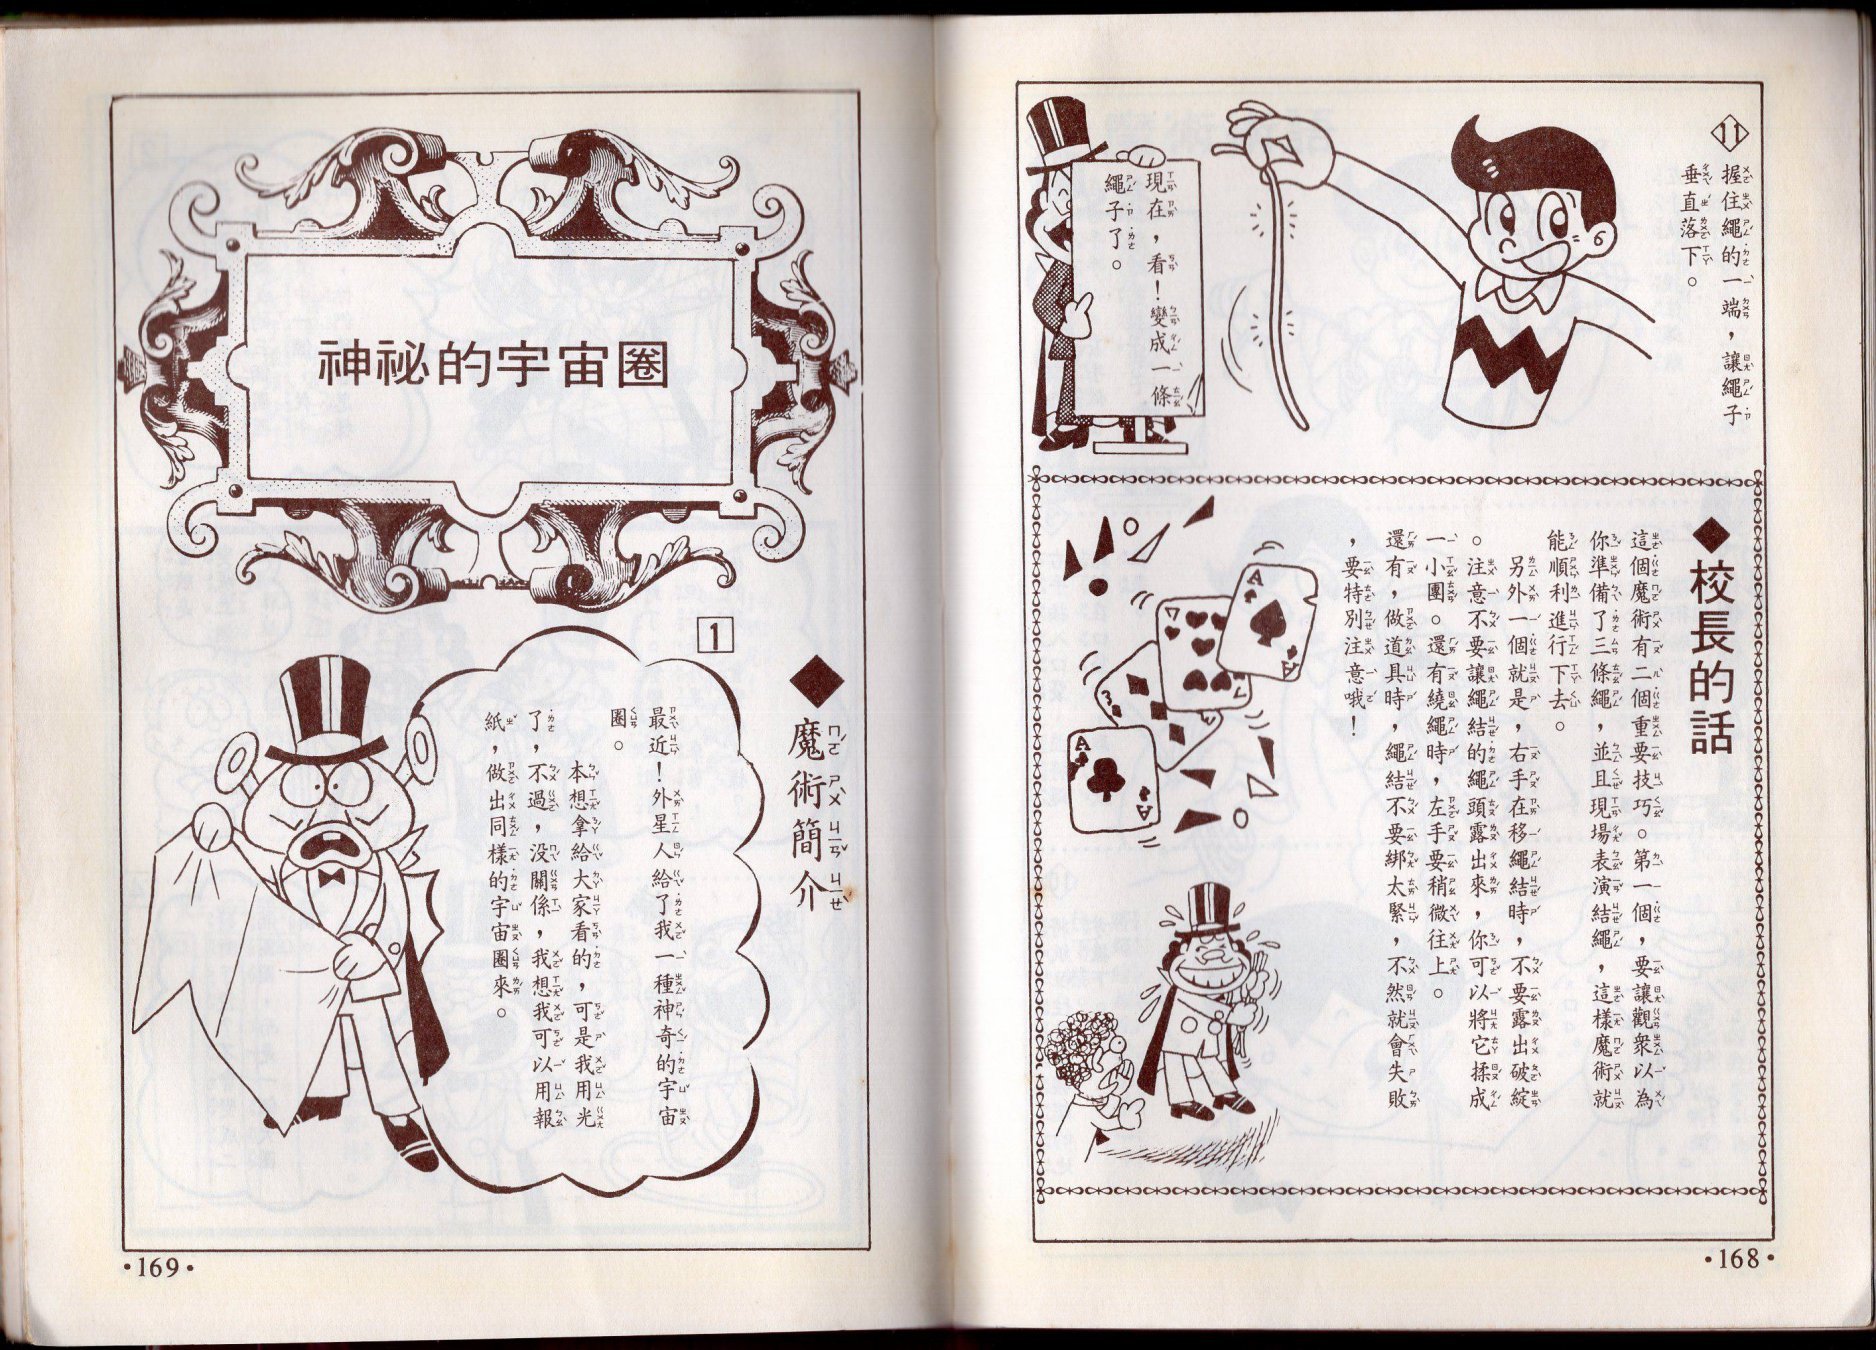 11
握住繩的一端，讓繩子
垂直落下。
現在，看！變成一條
繩子了。
◆校長的話
這個魔術有二個重要技巧。第一個，要讓觀眾以為
你準備了三條繩，並且現場表演結繩，這樣魔術就
能順利進行下去。
另外一個就是，右手在移繩結時，不要露出破綻
。注意不要讓繩結的繩頭露出來，你可以將它揉成
一小團。還有繞繩時，左手要稍微往上。
還有，做道具時，繩結不要綁太緊，不然就會失敗
，要特別注意哦！
A
A
7
7
3
A
A
·168·
神祕的宇宙圈
◆魔術簡介
1
最近！外星人給了我一種神奇的宇宙
圈。
本想拿給大家看的，可是我用光
了，不過，沒關係，我想我可以用報
紙，做出同樣的宇宙圈來。
·169·